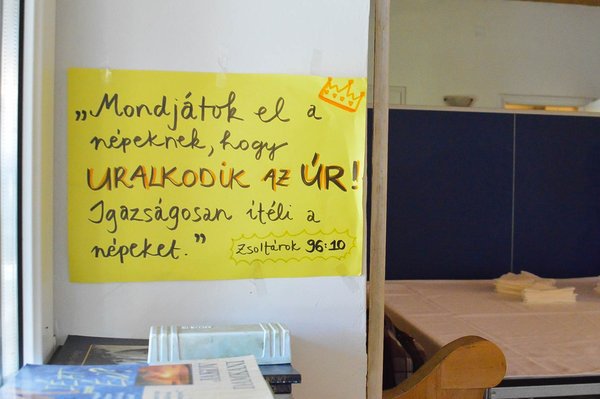 „Mondjátok el a
népeknek, hogy
URALKODIK AZ ÚR!
Igazságosan ítéli a
népeket.”
Zsoltárok 96:10